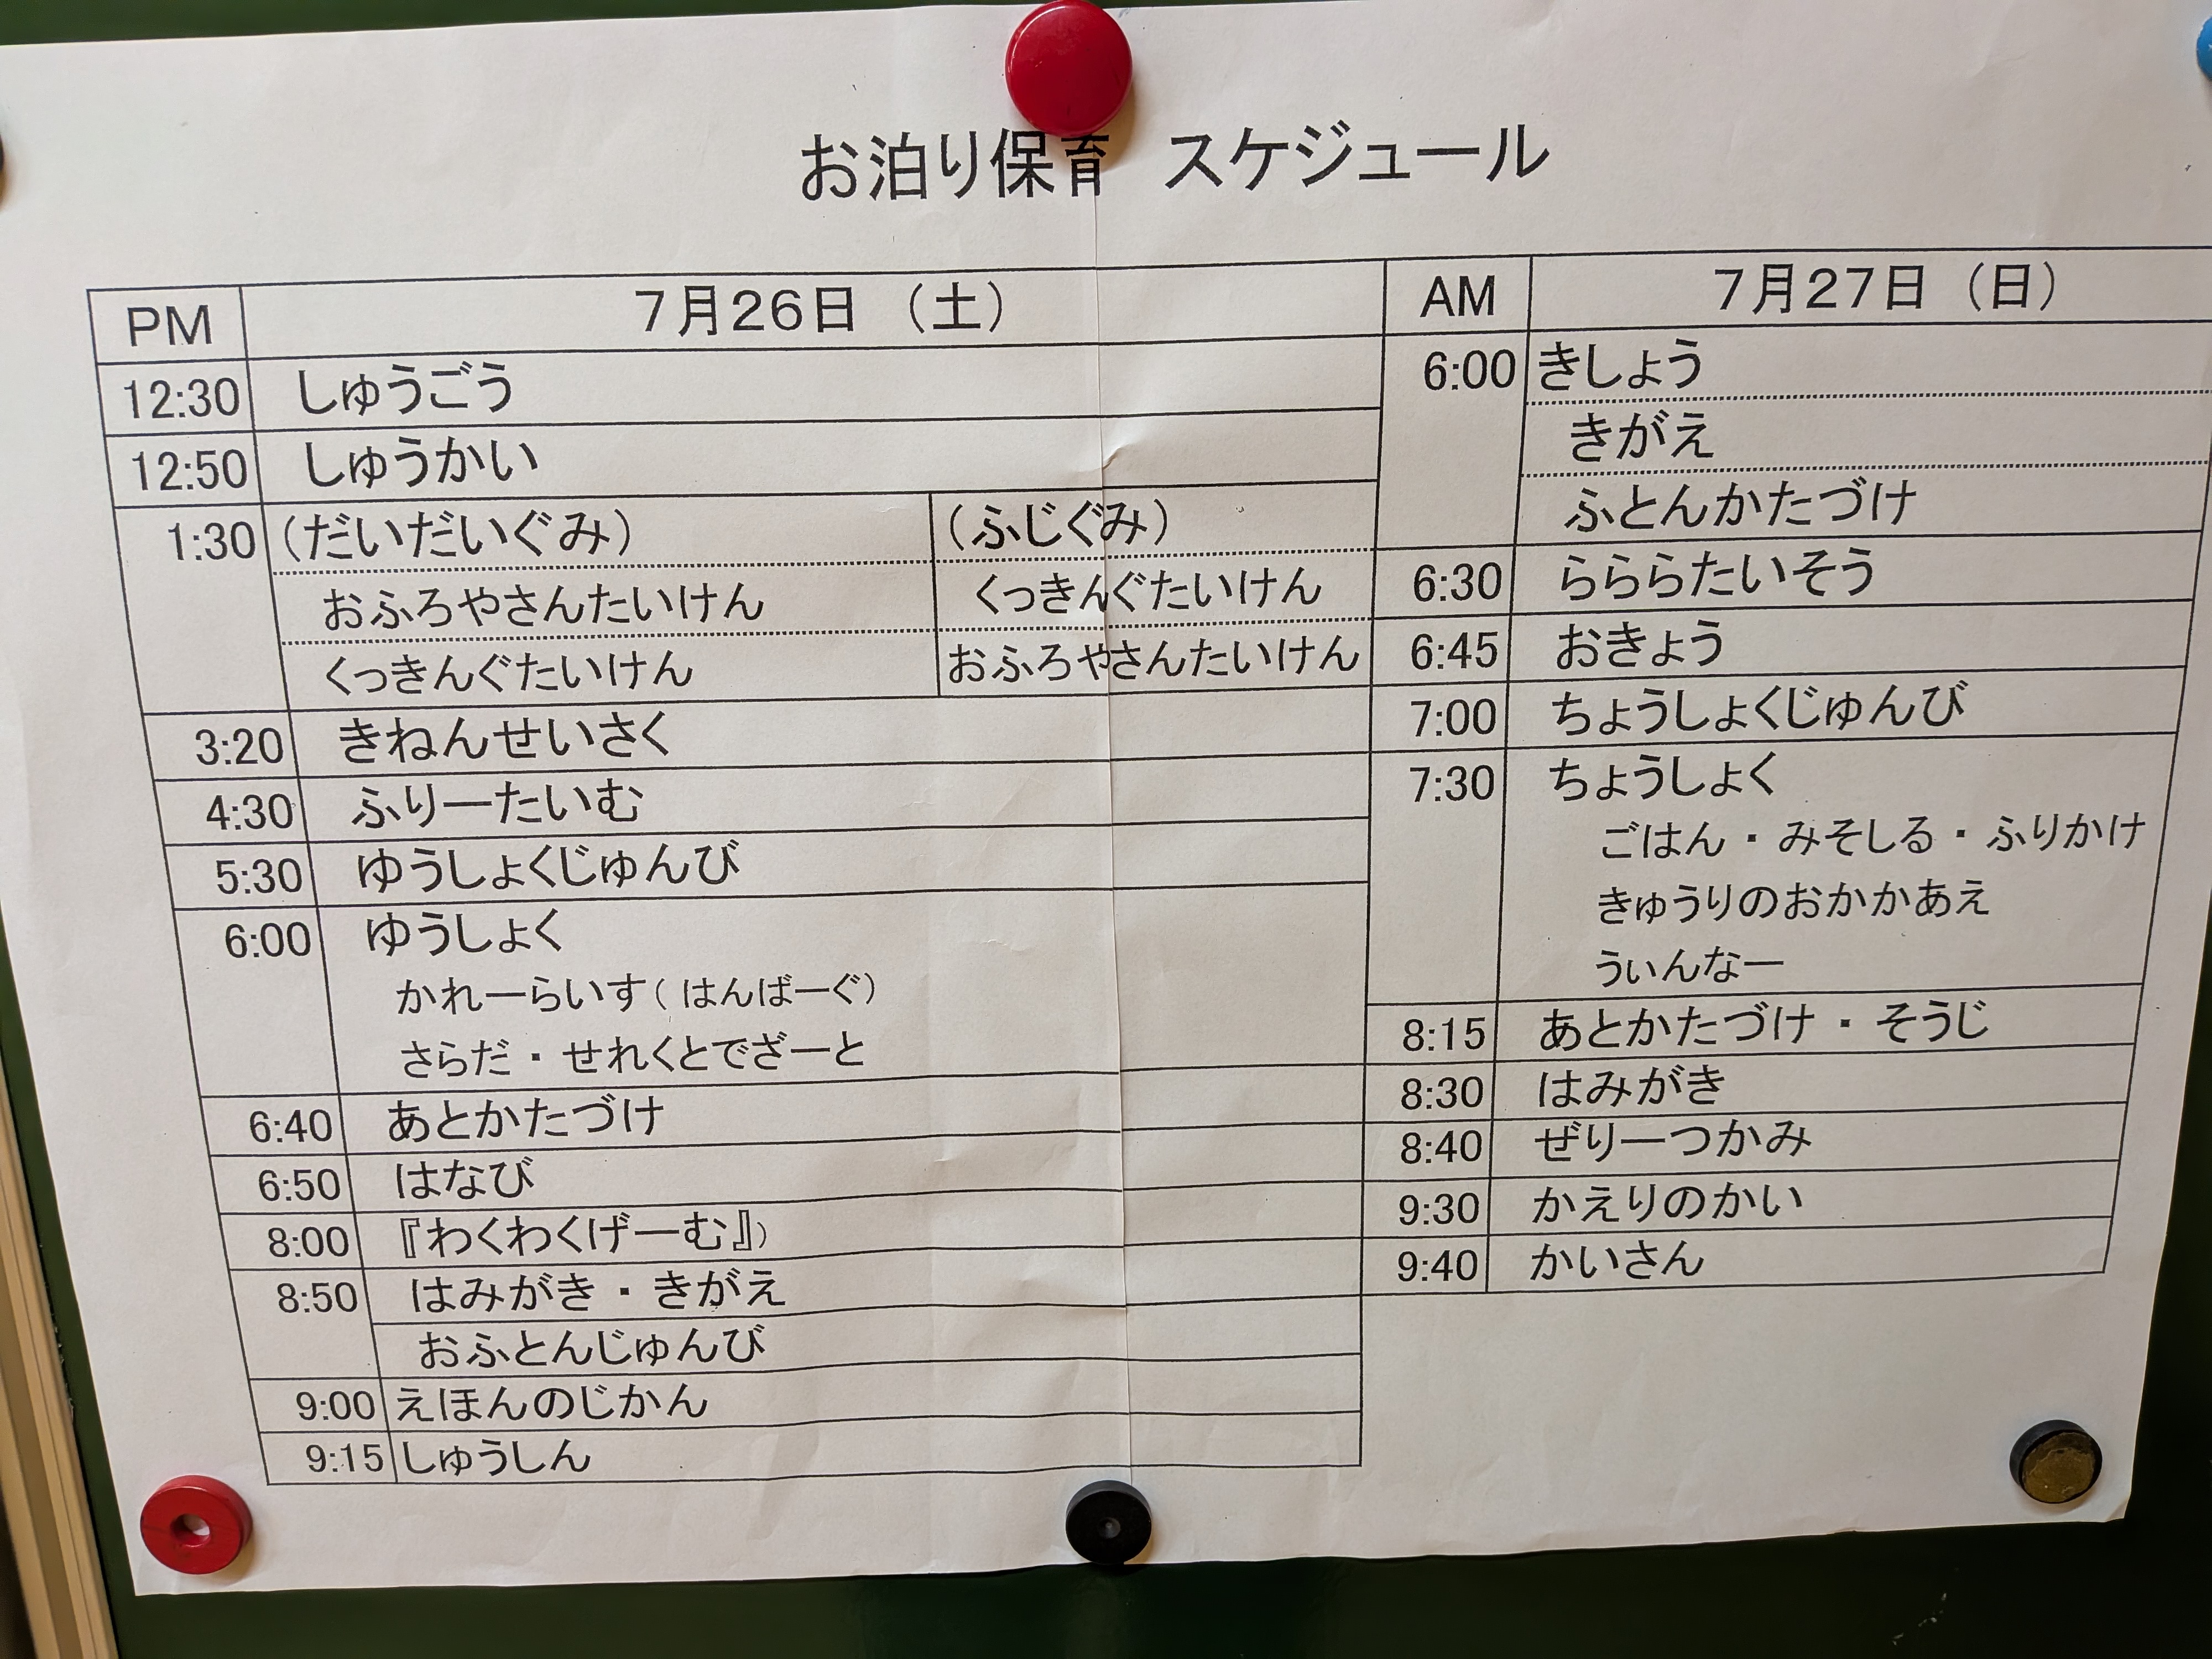 お泊り保育 スケジュール
PM 7月26日 （土）
12:30 しゅうごう
12:50 しゅうかい
1:30 （だいだいぐみ） （ふじぐみ）
おふろやさんたいけん くっきんぐたいけん
くっきんぐたいけん おふろやさんたいけん
3:20 きねんせいさく
4:30 ふりーたいむ
5:30 ゆうしょくじゅんび
6:00 ゆうしょく
かれーらいす（はんばーぐ）
さらだ・せれくとでざーと
6:40 あとかたづけ
6:50 はなび
8:00 『わくわくげーむ』）
8:50 はみがき・きがえ
おふとんじゅんび
9:00 えほんのじかん
9:15 しゅうしん
AM 7月27日（日）
6:00 きしょう
きがえ
ふとんかたづけ
6:30 らららたいそう
6:45 おきょう
7:00 ちょうしょくじゅんび
7:30 ちょうしょく
ごはん・みそしる・ふりかけ
きゅうりのおかかあえ
うぃんなー
8:15 あとかたづけ・そうじ
8:30 はみがき
8:40 ぜりーつかみ
9:30 かえりのかい
9:40 かいさん